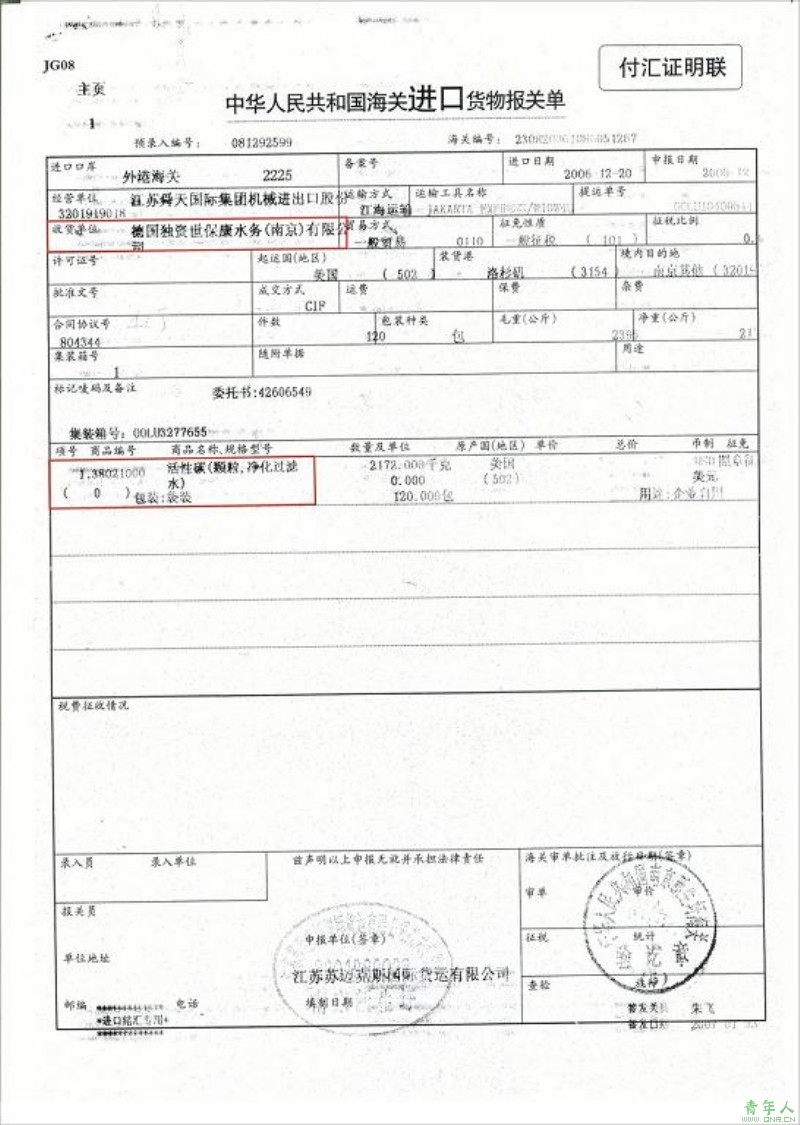 JG08
付汇证明联
主页
1
中华人民共和国海关进口货物报关单
预录入编号: 081292599 海关编号:
进口口岸 外港海关 2225 备案号 进口日期 2006-12-20 申报日期
经营单位 江苏舜天国际集团机械进出口股份 运输方式 运输工具名称 提运单号
3201919018 江海运输
收货单位 德国独资世保康水务(南京)有限公司 贸易方式 征免性质 征税比例
一般贸易 0110 一般征税 (101)
许可证号 起运国(地区) 装货港 境内目的地
美国 (502) 洛杉矶 (3154) 南京其他
批准文号 成交方式 运费 保费 杂费
CIF
合同协议号 件数 包装种类 毛重(公斤) 净重(公斤)
804344 120 包
集装箱号 随附单据 用途
1
标记唛码及备注 委托书:42606549
集装箱号: OOLU3277655
项号 商品编号 商品名称、规格型号 数量及单位 原产国(地区) 单价 总价 币制 征免
1.38021000 活性碳(颗粒,净化过滤 2172.000千克 美国
(0) 水) 0.000 (502) 美元
包装:袋装 120.000包 用途:企业自用
税费征收情况
录入员 录入单位 兹声明以上申报无讹并承担法律责任 海关审单批注及放行日期(签章)
审单 审价
报关员
申报单位(签章) 征税 统计
单位地址
江苏苏迈克斯国际货运有限公司
查验 放行
邮编 电话 填制日期
*进口结汇专用*
签发关员 朱飞
签发日期
青年人
WWW.QNR.CN